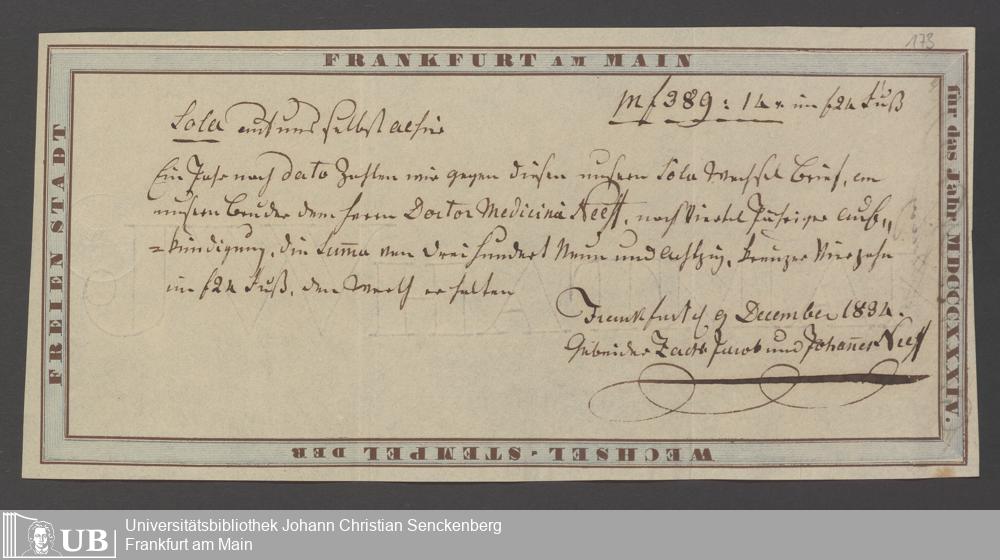 173
FRANKFURT AM MAIN
FREIEN STADT
für das Jahr MDCCCXXXIV.
WECHSEL-STEMPEL DER
Pr f 389: 14 x im f 24 Fuß
Sola auf uns selbst
Ein Jahr nach dato Zahlen wir gegen diesen unsern Sola Wechsel Brief, an
unsern Bruder dem Herrn Doctor Medicinä Neeff, nach Viertel Jähriger Auf„
=kündigung, die Summa von Dreihundert Neun und Achtzig, Kreuzer Vierzehn
im f 24 Fuß, den Werth erhalten
Frankfurt d 9 December 1834.
Gebrüder Jacob und Johannes Neeff
UB
Universitätsbibliothek Johann Christian Senckenberg
Frankfurt am Main